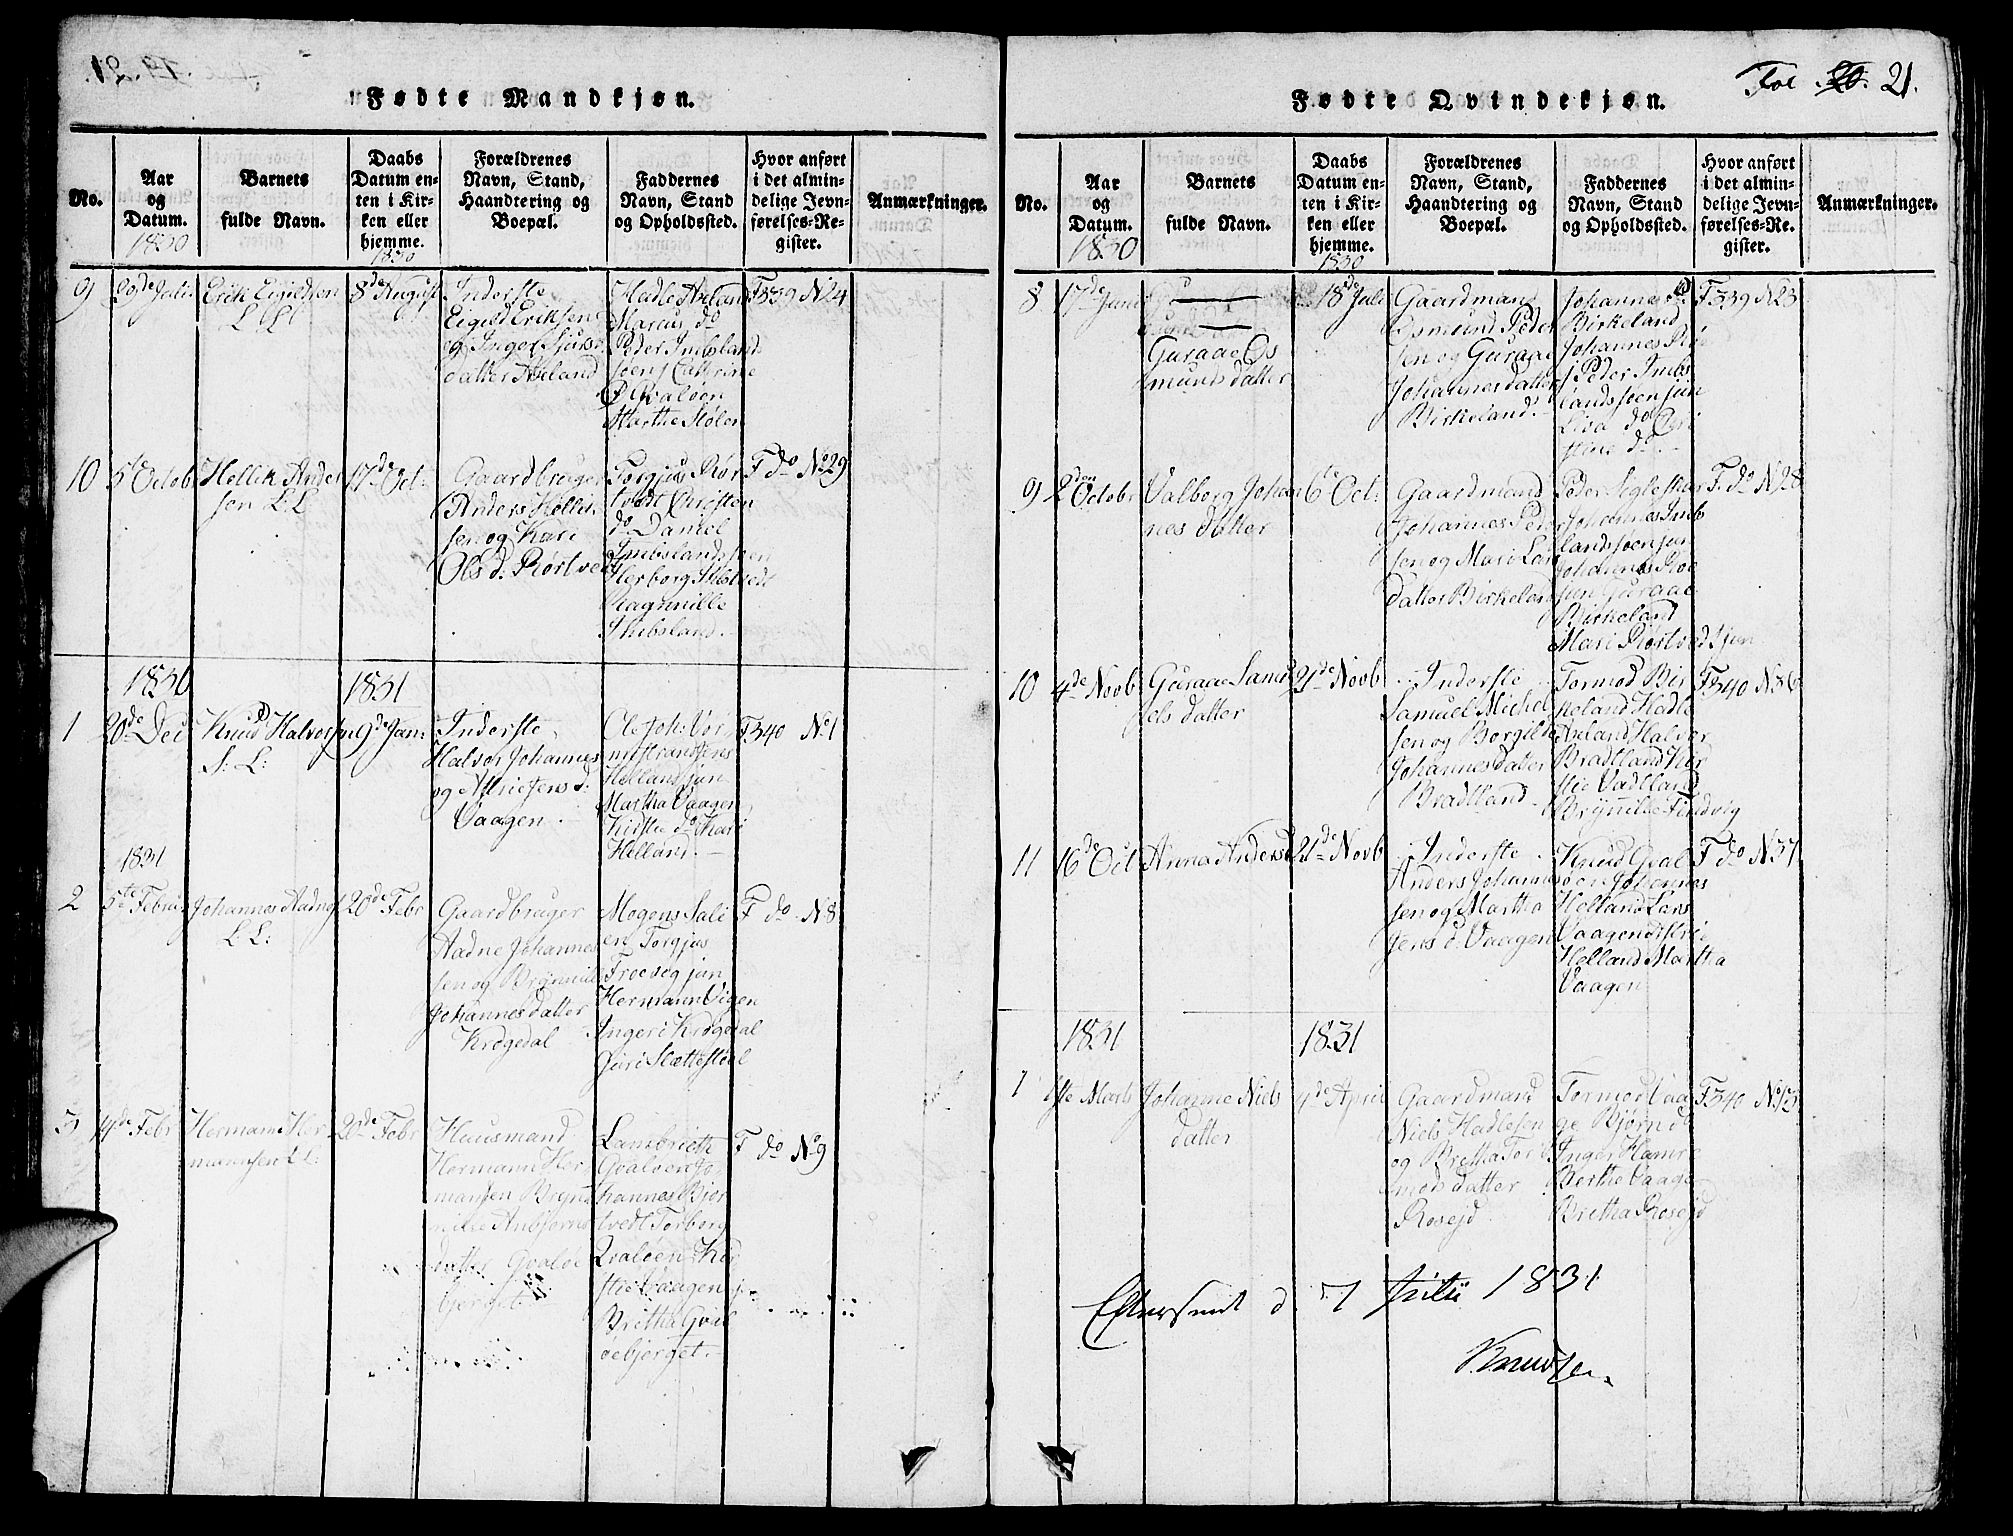 Fødte Mandkjøn.
No.
Aar
og
Datum.
1830
Barnets
fulde Navn.
Daabs
Datum en-
ten i Kir-
ken eller
hjemme.
1830
Forældrenes
Navn, Stand,
Haandtering og
Boepæl.
Faddernes
Navn, Stand
og Opholdssted.
Hvor anført
i det almin-
delige Jevn-
førelses-Re-
gister.
Anmærkninger.
9
29de Juli
Erik Eigildsen
8de August
Inderste
Eigild Eriksen
og Inger Sjurs
datter Axeland
Hadle Axeland
Marcus do
Peder Imbsland
Cathrine
Qvaløen
Marthe Stølen
F339 N24
10
5te Octob
Hellik Ander
sen L.L.
17de Oct:
Gaardbruger
Anders Hellik
sen og Kari
Ols d: Rørtvedt
Torgjus Rør
tvedt Christen
do Daniel
Imbsland
Herborg
Ragnnille
Imbsland.
F do No29
1830
1831
1
20de Dec
Knud Halvorsen
S: L:
9de Jan:
Inderste
Halvor Johannes
og
Vaagen.
Ole Joh: Vor
Helland jun
Martha Vaagen
Kirstie do Kari
Helland.
F340 No1
1831
2
5te Februar
Johannes Aadnes
L L:
20de Febr
Gaardbruger
Aadne Johannes
sen og Brynnild
Johannes datter
Krøgedal
Mogens Sale
en Torgjus
Froevog jun
Hermann Vigen
Ingeri Krøgedal
Guri Slettestøel
F do No8
3
14de Febr
Hermann Her
mannsen L L:
20de Febr
Huusmand
Hermann Her
mansen Bryn
nille Anbjørns
datter Qvaløe
bjerget
Lambricth
Qvaløen Jo
hannes Bjør
tvedt Torborg
Qvaløen Kir
stie Vaagen
Britha Qval
øebjerget.
F do No9
Fødte Qvindekjøn.
Fol. 20. 21.
No.
Aar
og
Datum.
1830
Barnets
fulde Navn.
Daabs
Datum en-
ten i Kir-
ken eller
hjemme.
1830
Forældrenes
Navn, Stand,
Haandtering og
Boepæl.
Faddernes
Navn, Stand
og Opholdssted.
Hvor anført
i det almin-
delige Jevn-
førelses-Re-
gister.
Anmærkninger.
8
17de Juni
Guraae Os
munds datter
18de Juli
Gaardmand
Osmund Peder
sen og Guraae
Johannes datter
Birkeland.
Johannes
Birkeland
Johannes Røe
Peder Imbs
landssøen jun
Lisa do Chri
stine do.
F339 N23
9
2den Octobr
Valborg Johan
nes datter
6te Oct:
Gaardmand
Johannes Peder
sen og Mari Lars
datter Birkeland
Peder Egleskar
Johannes Imbs
landssøen jun
Johannes Røe
jun Guraae
Birkeland
Mari Rørtvedt jun
F. do N28
10
4de Novb
Guraae Samu
els datter
21de Novb
Inderste
Samuel Michel
sen og Borgilde
Johannes datter
Bradtland.
Tormod Bir
keland Hadle
Axeland Halvor
Bradtland Kir
stie Vadtland
Brynnille Findvig
F340 N36
11
16de Oct
Anna Anders d
21de Novb
Inderste
Anders Johannes
sen og Martha
Jens d: Vaagen
Knud Qval
øen Johannes
Helland Lars
Vaagen
Helland Martha
Vaagen
F do N37
1831
1831
1
1ste Marts
Johanne Niels
datter
4de April
Gaardmand
Niels Hadlesen
og Bretha Tor
mods datter
Røsejd
Tormod Vaa
ge Bjørn do
Inger Hamre
Berthe Vaage
Bretha Røsejd
F340 No13
Efterseet d. 7 Julii 1831
Knudsen.